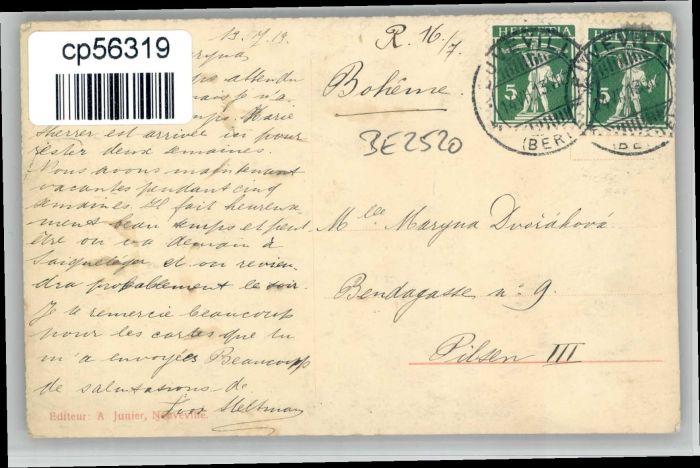 cp56319
R. 16/7.
Bohême.
BE2520
HELVETIA HELVETIA
5 5
NEUVEVILLE
(BERN)
attendu
mais je n'a
temps. Marie
Scherrer est arrivée ici pour
rester deux semaines.
Vous avons maintenant
vacantes pendant cinq
semaines. Il fait heureuse-
ment beau temps et peut
être on va demain à
Saignelégier et on revien-
dra probablement le soir.
Je te remercie beaucoup
pour les cartes que tu
m'a envoyées Beaucoup
de salutations de
Mlle Maryna Dvořáková
Bendagasse no 9.
Pilsen III
Editeur: A Junier, Neuveville.